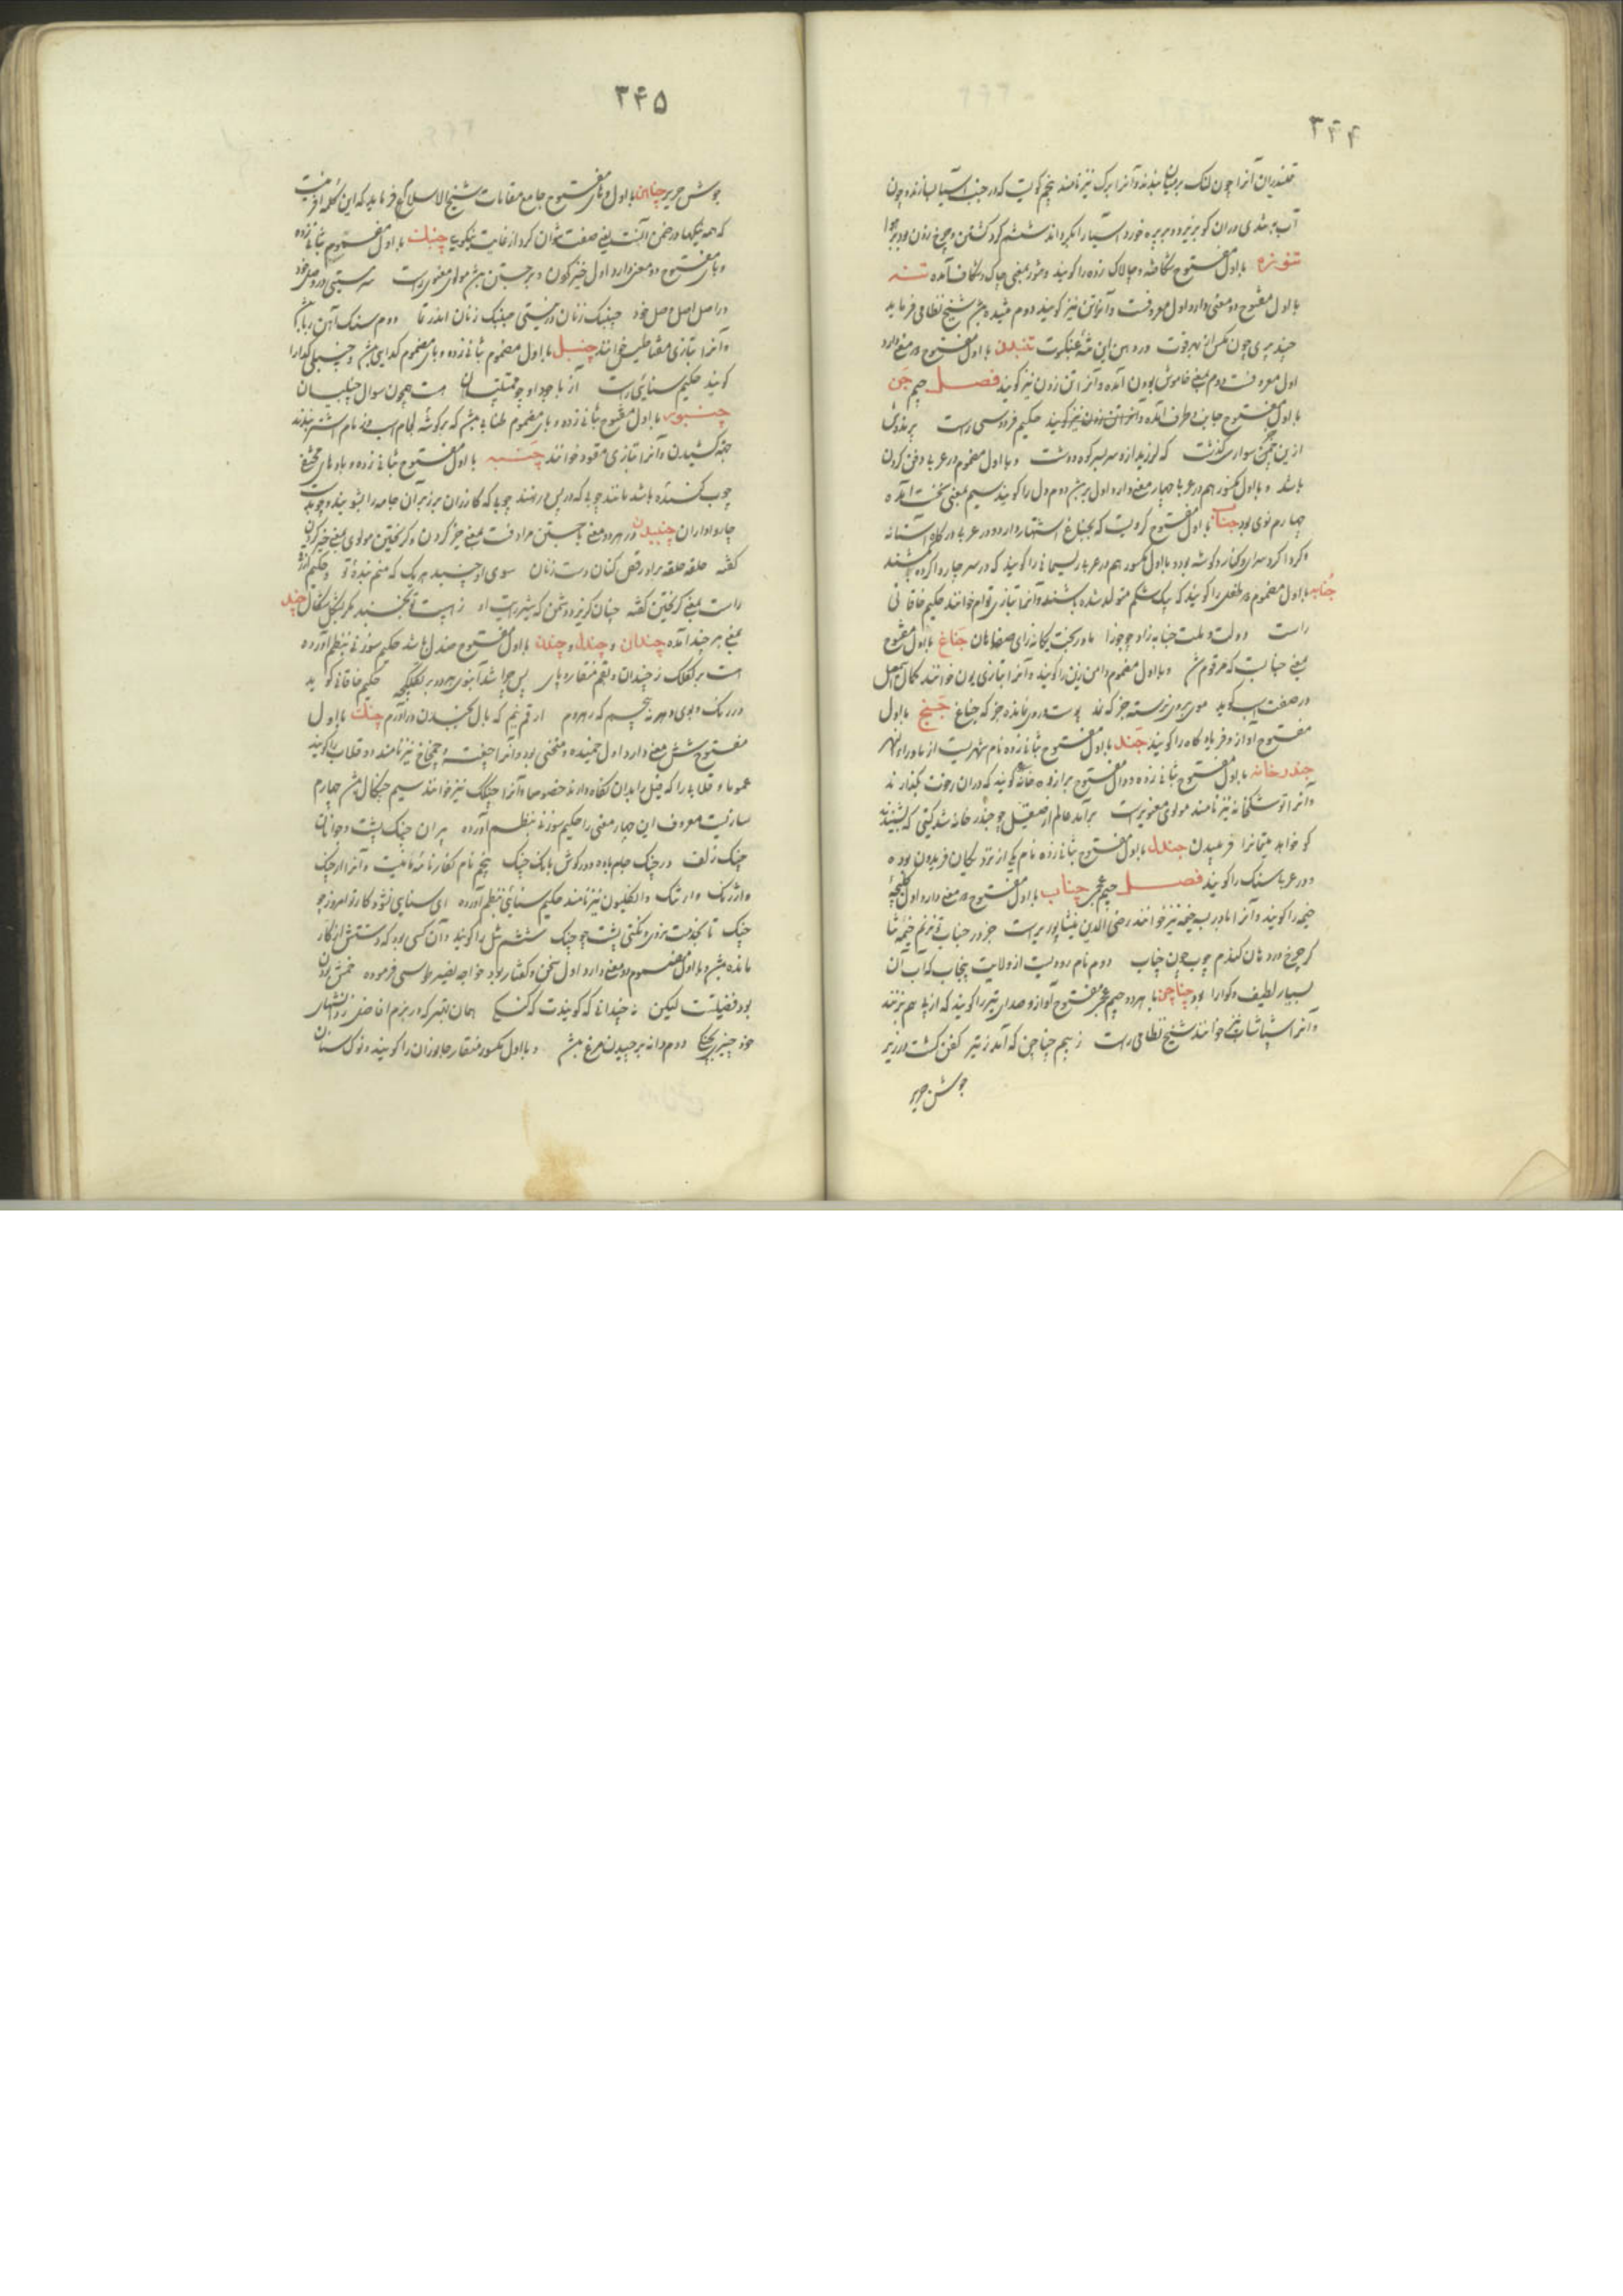 ۳۴۴
قلندران آنرا چون لنگ بر میان بندند و آنرا برک نیز نامند پنجم کویست که در جنب آسیا بسازند و چون
آب به تندی در آن کو بریزد و بر پره خورد آسیا را بگرداند ششم کرد کشتن و چرخ زدن بود
تنوزه با اول مفتوح شکافته و چاک زده را گویند و تنوز بمعنی چاک و شکاف آمده تنه
با اول مفتوح دو معنی دارد اول معروفست و آنرا تن نیز گویند دوم تنیده شیخ نظامی فرماید
چند پری چون مگس از بهر قوت در دهن این تنهٔ عنکبوت تنیدن با اول مفتوح دو معنی دارد
اول معروفست دوم بمعنی خاموش بودن آمده و آنرا تن زدن نیز گویند فصل جیم جن
با اول مفتوح جانب و طرف آمده حکیم فردوسی راست
ازین سواری گذشت که لرزید ازو سر بسر کوه و دشت و با اول مضموم در عربی دفن کردن
باشد و با اول مکسور هم در عربی چهار معنی دارد اول دوم دل را گویند سیم بمعنی آمده
چهارم بود جناب با اول مفتوح کرویست که بجناغ اشتهار دارد و در عربی درگاه آستانه
و کرداکرد سرای و کناره و گوشه بود و با اول مکسور هم در عربی ریسمانی را گویند که در سر چاروا کرده بکشند
جنابه با اول مضموم دو طفلی را گویند که بیک شکم متولد شده باشند و آنرا بتازی توام خوانند حکیم خاقانی
راست دولت و ملت جنابه زاد چو جوزا مادر بخت یگانه زای صفاهان جناغ با اول مفتوح
بمعنی جنابست که مرقوم شد و با اول مضموم دامن زین را گویند و آنرا بتازی یون خوانند کمال اسمعیل
در صفت اسب گوید موی بروی نرسته جز که نمد پوست بروی نمانده جز که جناغ جنج با اول
مفتوح آواز و فریاد گاه را گویند جند با اول مفتوح بثانی زده نام شهریست از ماوراءالنهر
جندرخانه با اول مفتوح بثانی زده و دال مفتوح برازده خانهٔ گویند که در آن رخوت بگذارند
و آنرا توشکخانه نیز نامند مولوی معنویراست برآمد عالم از صیقل چو جندر خانه شد گیتی که بنشیند
کو خواهد یتمانرا فرعیدن جندل با اول مفتوح بثانی زده نام یکی از نزدیکان فریدون بوده
و در عربی سنگ را گویند فصل جیم عجمی چناب با اول مفتوح دو معنی دارد اول کلیچهٔ
خیمه را گویند و آنرا بادریسه خیمه نیز خوانند رضی الدین نیشاپوریراست جز در خیمهٔ ثنا
گر چرخ درد هان کندم چوب چون چناب دوم نام رودیست از ولایت پنجاب که آب آن
بسیار لطیف و گوارا بود چناچن با هر دو جیم عجمی مفتوح آواز و صدای تیر را گویند که از پی هم بزنند
و آنرا شپاشاپ نیز خوانند شیخ نظامی راست ز بیم چناچن که آمد ز تیر کفن گشت در زیر
جوشن حریر
۳۴۵
جوشن حریر چناهن با اول و های مفتوح جامع مقامات شیخ الاسلام فرماید که این کلمه آفرینست
که همه نیکیها در ضمن آنست یعنی صفت نتوان کرد از غایت نیکویی چنبک با اول مضموم بثانی زده
و بای مفتوح دو معنی دارد اول خیز کردن و برجستن مولوی معنوی راست
در اصل اصل اصل خود چنبک زنان در نیستی چنبک زنان اندر بقا دوم سنگ آهن ربا باشد
و آنرا بتازی مقناطیس خوانند چنبل با اول مضموم بثانی زده و بای مضموم گدایی و چنبلی گدا را
گویند حکیم سنایی راست از با وجود او چو هست همچون سوال چنبلیان
چنبور با اول مفتوح بثانی زده و بای مضموم طنابی که بر گوشه لجام اسب و زمام اشتر بندند
جهة کشیدن و آنرا بتازی مقود خوانند چنبه با اول مفتوح بثانی زده و با و های مختفی
چوب گنده باشد مانند چوبی که در پس در نهند چوبی که گازران برزبر آن جامه را بشویند و چوب
چارواداران چنبیدن در هر دو معنی با جستن مرادفست بمعنی خیز کردن و گریختن مولوی بمعنی خیز کردن
گفته حلقه حلقه بر او رقص کنان دست زنان سوی او چنبد هر یک که منم بندهٔ تو و حکیم انوری
راست بمعنی گریختن گفته چنان گریزد دشمن که تیر راست او نجنبد مگر بشکل شکال چند
بمعنی هر چند آمده چندان و چندل و چندن با اول مفتوح صندل باشد حکیم سوزنی بنظم آورده
است بر لقلق ز چندان و بقم منقار و پای پس چرا شد آبنوس هر دو پر لقلقه حکیم خاقانی گوید
در رنگ و بوی دهر نه پیچم که ارقم نیم که بال بچندن در آورم چنگ با اول
مفتوح شش معنی دارد اول خمیده و منحنی بود و آنرا چفته و چمچاخ نیز نامند دو قلاب را گویند
عموما و قلابی را که فیل را بدان نگاه دارند خصوصا و آنرا چنگک نیز خوانند سیم چنگال چهارم
سازیست معروف این چهار معنی را حکیم سوزنی بنظم آورده پیران چنگ پشت و جوانان
چنگ زلف در چنگ جام باده و در گوش بانگ چنگ پنجم نام نگارنامه مانیست و آنرا ارچنگ
و ارژنگ و ارتنگ و انگلیون نیز نامند حکیم سنایی بنظم آورده ای سنایی نشود کار تو امروز چو
چنگ تا بخدمت نروی و نکنی پشت چو چنگ ششم شل را گویند و آن کسی بود که دستش از کار
مانده باشد و با اول مضموم دو معنی دارد اول سخن و گفتار بود خواجه نصیر طوسی فرموده خمش بودن
بود فضیلت لیکن نه چندانی که گویندت که گنگی همان بهتر که در بزم افاضل ز دانشهای
خود چیزی بچنگی دوم دانه بر چیدن مرغ و با اول مکسور منقار جانوران را گویند و نوک سنان